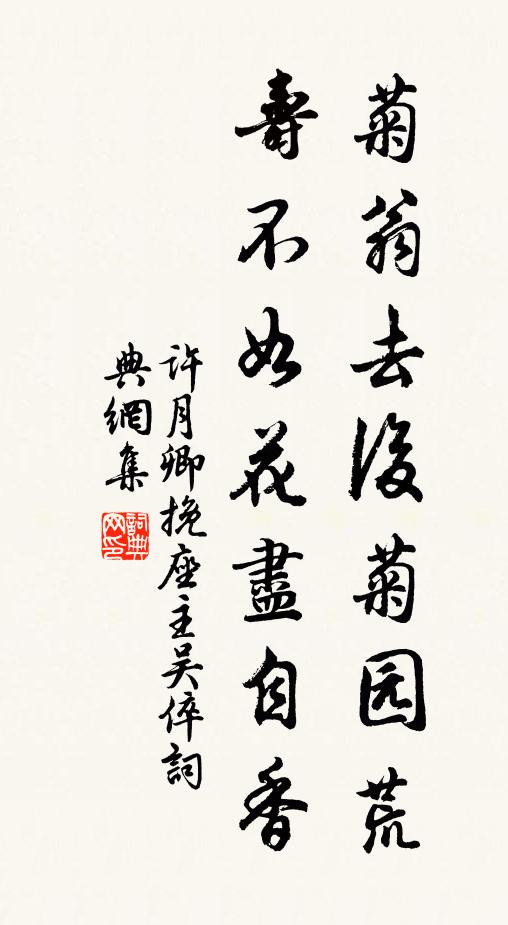 菊翁去後菊园荒
壽不如花盡自香
許月卿挽座主吴倅詞
典網集
詞典网印